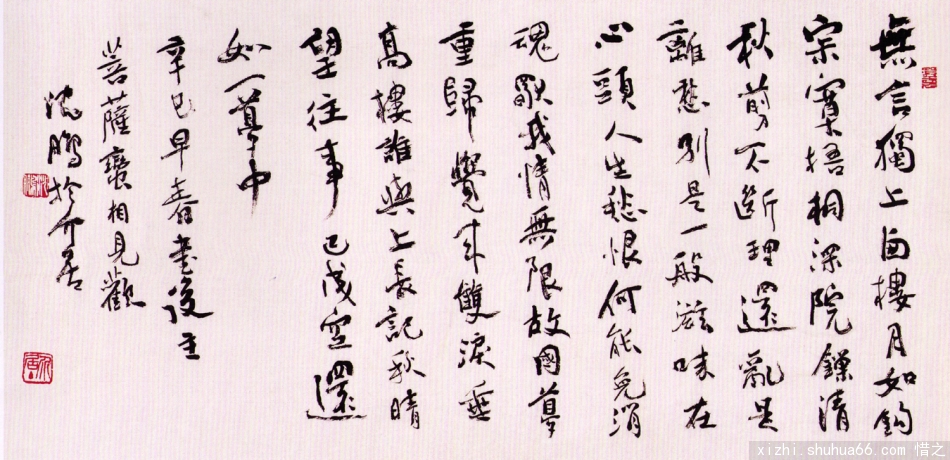 無言獨上西樓月如鈎
寂寞梧桐深院鎖清
秋剪不斷理還亂是
離愁別是一般滋味在
心頭人生愁恨何能免消
魂獨我情無限故國夢
重歸覺來雙淚垂
高樓誰與上長記秋晴
望往事已成空還
如一夢中
辛巳早春書後主
菩薩蠻相見歡
沈鵬於介居
xizhi.shuhua66.com 惜之